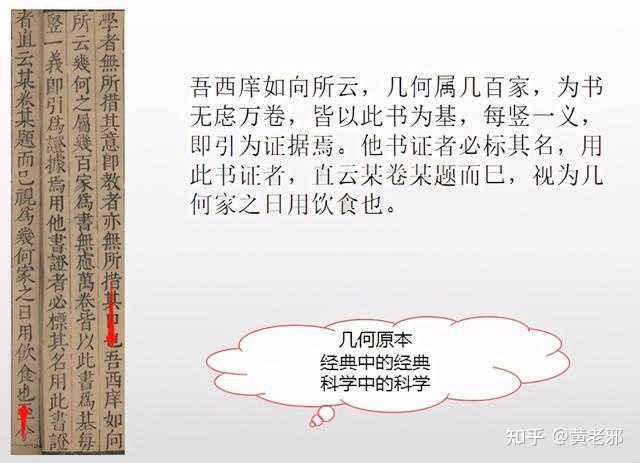 學者無所措其意即教者亦無所措其口也吾西庠如向
所云幾何之屬幾百家爲書無慮萬卷皆以此書爲基每
竪一義即引爲證據焉用他書證者必標其名用此書證
者直云某卷某題而已視爲幾何家之日用飲食也
吾西庠如向所云，几何属几百家，为书
无虐万卷，皆以此书为基，每竖一义，
即引为证据焉。他书证者必标其名，用
此书证者，直云某卷某题而巳，视为几
何家之日用饮食也。
几何原本
经典中的经典
科学中的科学
知乎 @黄老邪